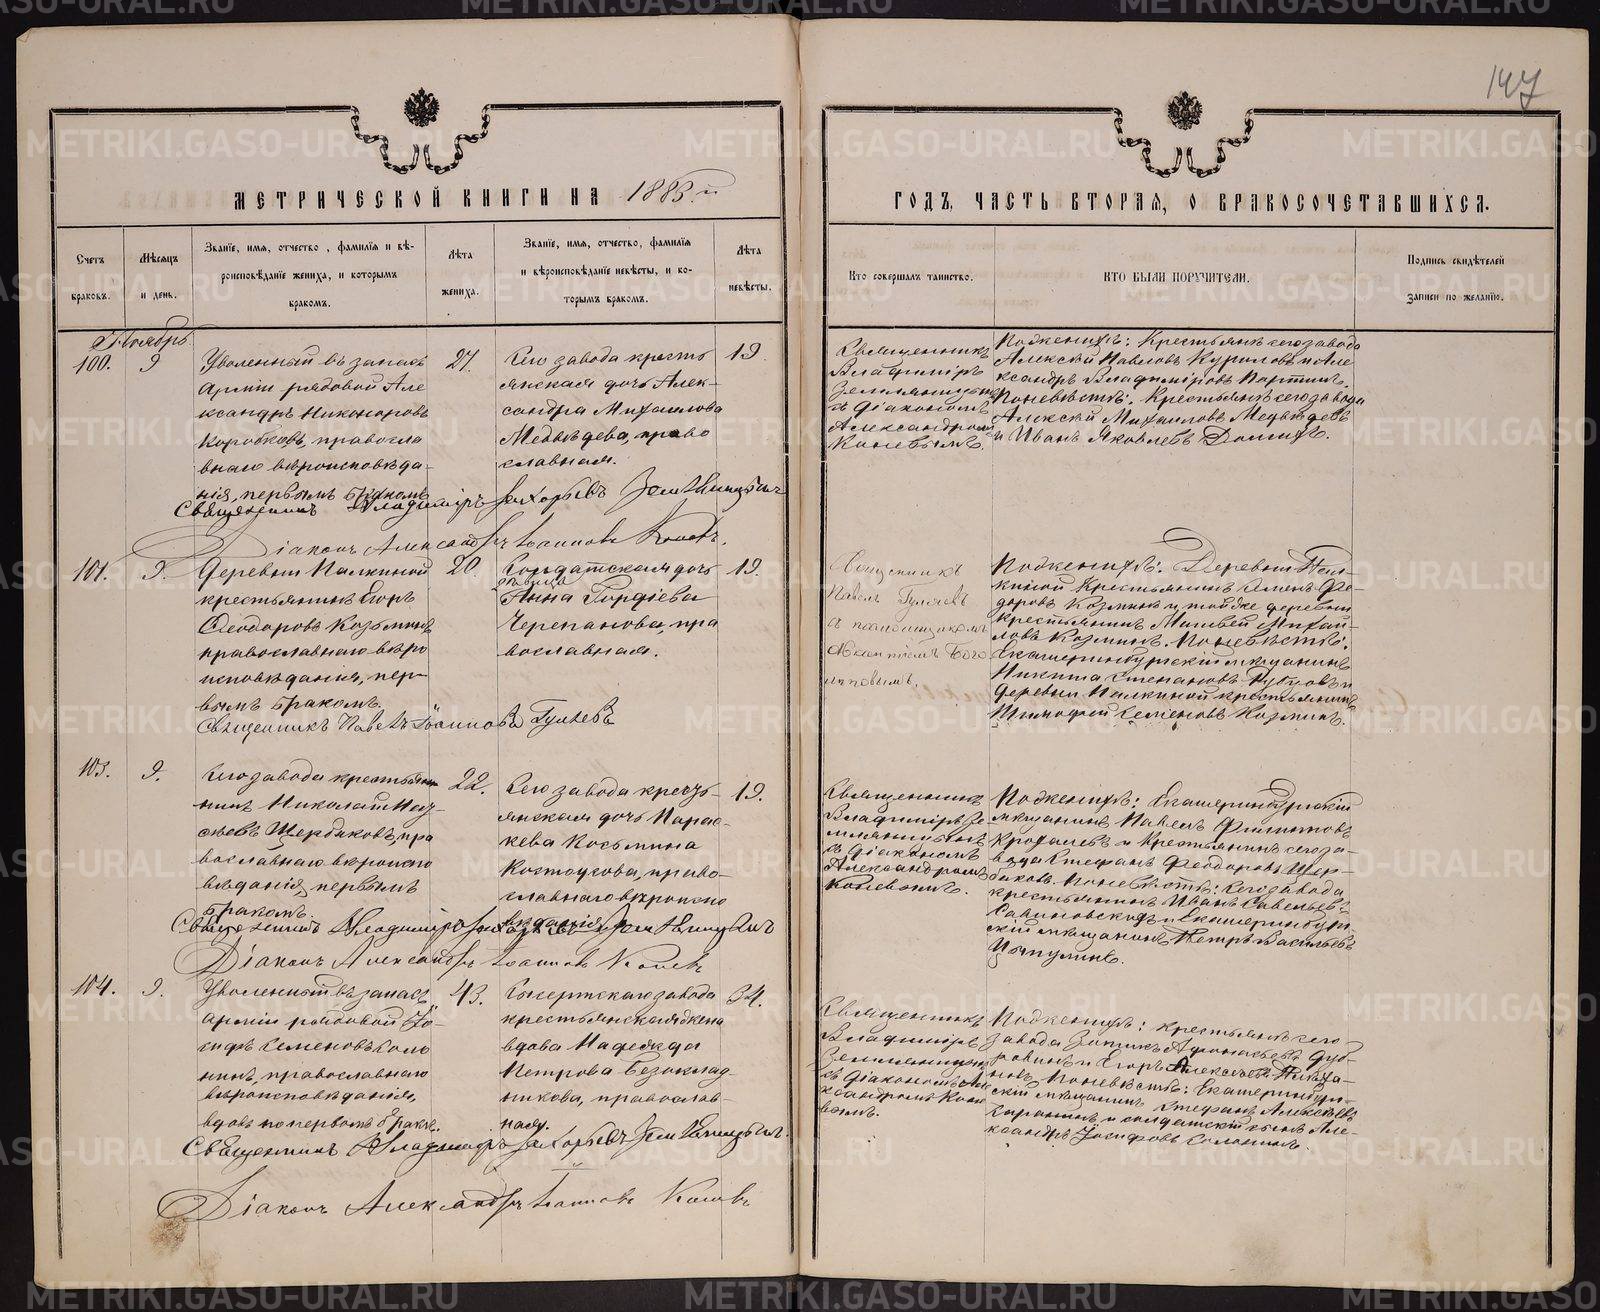 147
МЕТРИЧЕСКОЙ КНИГИ НА 1885 й
ГОДЪ, ЧАСТЬ ВТОРАЯ, О БРАКОСОЧЕТАВШИХСЯ.
Счетъ
браковъ.
Мѣсяцъ
и день.
Званіе, имя, отчество, фамилія и вѣ-
роисповѣданіе жениха, и которымъ
бракомъ.
Лѣта
жениха.
Званіе, имя, отчество, фамилія
и вѣроисповѣданіе невѣсты, и ко-
торымъ бракомъ.
Лѣта
невѣсты.
Кто совершалъ таинство.
КТО БЫЛИ ПОРУЧИТЕЛИ.
Подпись свидѣтелей
записи по желанію.
Ноябрь
100.
9
Уволенный въ запасъ
арміи рядовой Але
ксандръ Никоноровъ
Коробковъ, правосла
внаго вѣроисповѣда-
нія, первымъ бракомъ
27.
Сего завода кресть
янская дочь Алек-
сандра Михаилова
Медвѣдева, право
славная.
19
Священникъ
Владиміръ
Земляницынъ
съ діакономъ
Александромъ
Коневымъ.
По женихѣ: Крестьяне сего завода
Алексѣй Павловъ и Але
ксандръ Владиміровъ
По невѣстѣ: Крестьяне сего завода
Алексѣй Михаиловъ Медвѣдевъ
и Иванъ Яковлевъ
Священникъ Владиміръ Захарьевъ Земляницынъ
Діаконъ Александръ Іоанновъ Коневъ.
101.
9.
Деревни Палкиной
крестьянинъ Егоръ
Ѳеодоровъ Козьминъ
православнаго вѣро
исповѣданія, пер-
вымъ бракомъ.
20
Солдатская дочь
дѣвица
Анна Гордіева
Черепанова, пра
вославная.
19.
Священникъ
Павелъ Гуляевъ
съ псаломщикомъ
По женихѣ: Деревни Пал-
киной Крестьянинъ Семенъ Ѳе-
доровъ Козминъ и тойже деревни
крестьянинъ Матвей Михай-
ловъ Козминъ. По невѣстѣ:
Екатеринбургскій мѣщанинъ
Никита Степановъ и
деревни Палкиной крестьянинъ
Тимофей Семеновъ Козминъ.
Священникъ Павелъ Іоанновъ Гуляевъ
103.
9.
Сего завода крестья
нинъ Николай
Щербаковъ, пра
вославнаго вѣроиспо
вѣданія, первымъ
бракомъ
22.
Сего завода кресть-
янская дочь Парас-
кева Косьмина
Костоусова, право-
славнаго вѣроиспо
вѣданія
19.
Священникъ
Владиміръ Зе
мляницынъ
съ діакономъ
Александромъ
Коневымъ.
По женихѣ: Екатеринбургскій
мѣщанинъ Павелъ Филиповъ
и Крестьянинъ сего за-
вода Стефанъ Ѳеодоровъ Щер-
баковъ. По невѣстѣ: Сего завода
крестьянинъ Иванъ Савельевъ
и Екатеринбург-
скій мѣщанинъ Петръ Васильевъ
Священникъ Владиміръ Захарьевъ Земляницынъ
Діаконъ Александръ Іоанновъ Коневъ
104.
9.
Уволенный въ запасъ
арміи рядовой Іо-
сифъ Семеновъ Соло
нинъ, православнаго
вѣроисповѣданія,
вдовъ по первомъ бракѣ.
43.
Сысертскаго завода
крестьянская жена
вдова Надежда
Петрова Безоклад-
никова, православ-
наго.
34.
Священникъ
Владиміръ
Земляницынъ
съ діакономъ Але
ксандромъ Коне
вымъ.
По женихѣ: крестьяне сего
завода Афонасьевъ Дуб-
ровинъ и Егоръ Алексѣевъ
По невѣстѣ: Екатеринбург-
скій мѣщанинъ Стефанъ Алексѣевъ
и солдатскій сынъ Але-
ксандръ Іосифовъ Солонинъ.
Священникъ Владиміръ Захарьевъ Земляницынъ.
Діаконъ Александръ Іоанновъ Коневъ
METRIKI.GASO-URAL.RU